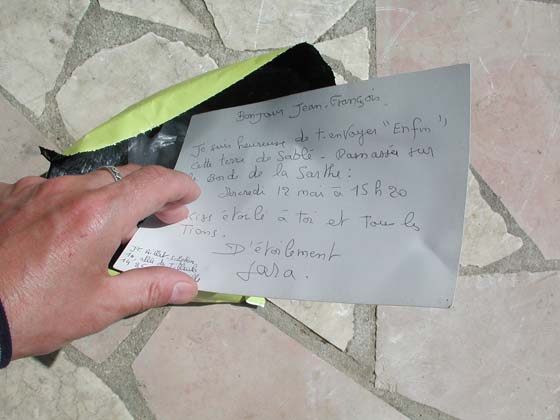 Bonjour Jean-François.
Je suis heureuse de t-envoyer "Enfin",
cette terre de Sablé - Ramassée sur
le Bord de la Sarthe:
Mercredi 12 mai à 15 h 20
Kiss étoilé à toi et Tous les
Tiens.
D'étoilement
Sara.